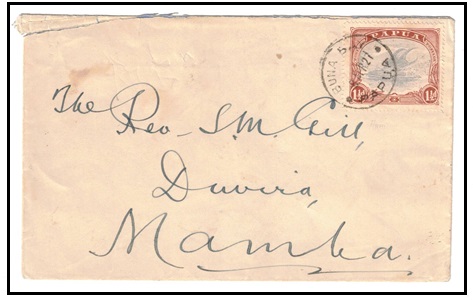 PAPUA
1½ 1½
BUNA
PAPUA
The
Rev S. M. Gill,
Duvira,
Mamba.